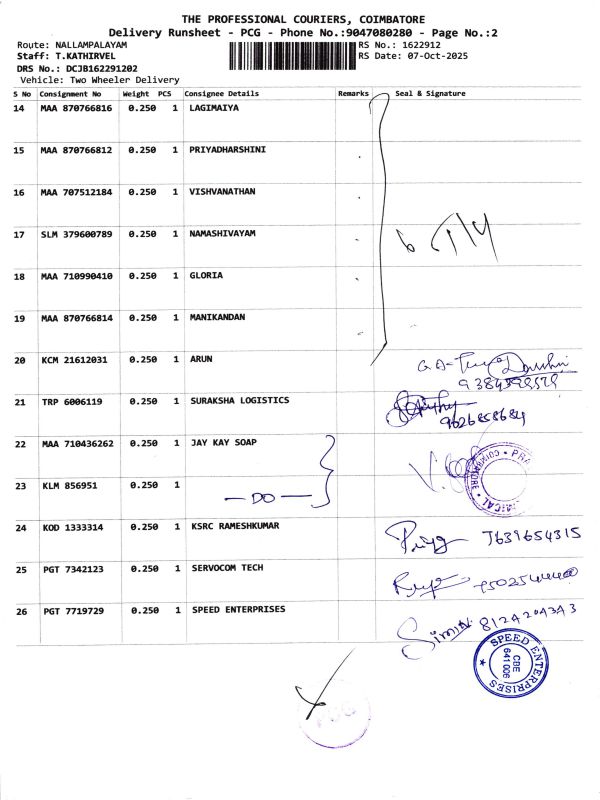 THE PROFESSIONAL COURIERS, COIMBATORE
Delivery Runsheet - PCG - Phone No.:9047080280 - Page No.:2
Route: NALLAMPALAYAM RS No.: 1622912
Staff: T.KATHIRVEL RS Date: 07-Oct-2025
DRS No.: DCJB162291202
Vehicle: Two Wheeler Delivery
S No Consignment No Weight PCS Consignee Details Remarks Seal & Signature
14 MAA 870766816 0.250 1 LAGIMAIYA
15 MAA 870766812 0.250 1 PRIYADHARSHINI
16 MAA 707512184 0.250 1 VISHVANATHAN
17 SLM 379600789 0.250 1 NAMASHIVAYAM
18 MAA 710990410 0.250 1 GLORIA
19 MAA 870766814 0.250 1 MANIKANDAN
20 KCM 21612031 0.250 1 ARUN
21 TRP 6006119 0.250 1 SURAKSHA LOGISTICS
9626858684
22 MAA 710436262 0.250 1 JAY KAY SOAP
23 KLM 856951 0.250 1
— DO —
24 KOD 1333314 0.250 1 KSRC RAMESHKUMAR
7639654315
25 PGT 7342123 0.250 1 SERVOCOM TECH
26 PGT 7719729 0.250 1 SPEED ENTERPRISES
SPEED ENTERPRISES
CBE
641 006
PCG